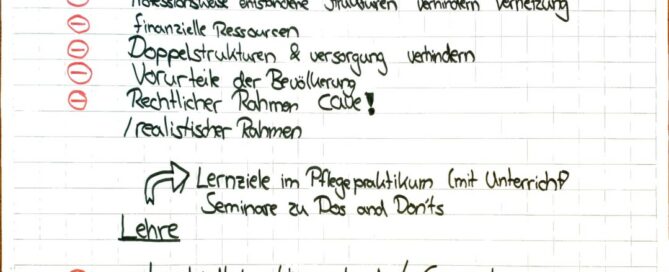 Professionsweise entstandene Strukturen verhindern Vernetzung
finanzielle Ressourcen
Doppelstrukturen & versorgung verhindern
Vorurteile der Bevölkerung
Rechtlicher Rahmen CAVE!
/realistischer Rahmen
Lernziele im Pflegepraktikum (mit Unterricht?
Seminare zu Dos and Don'ts
Lehre